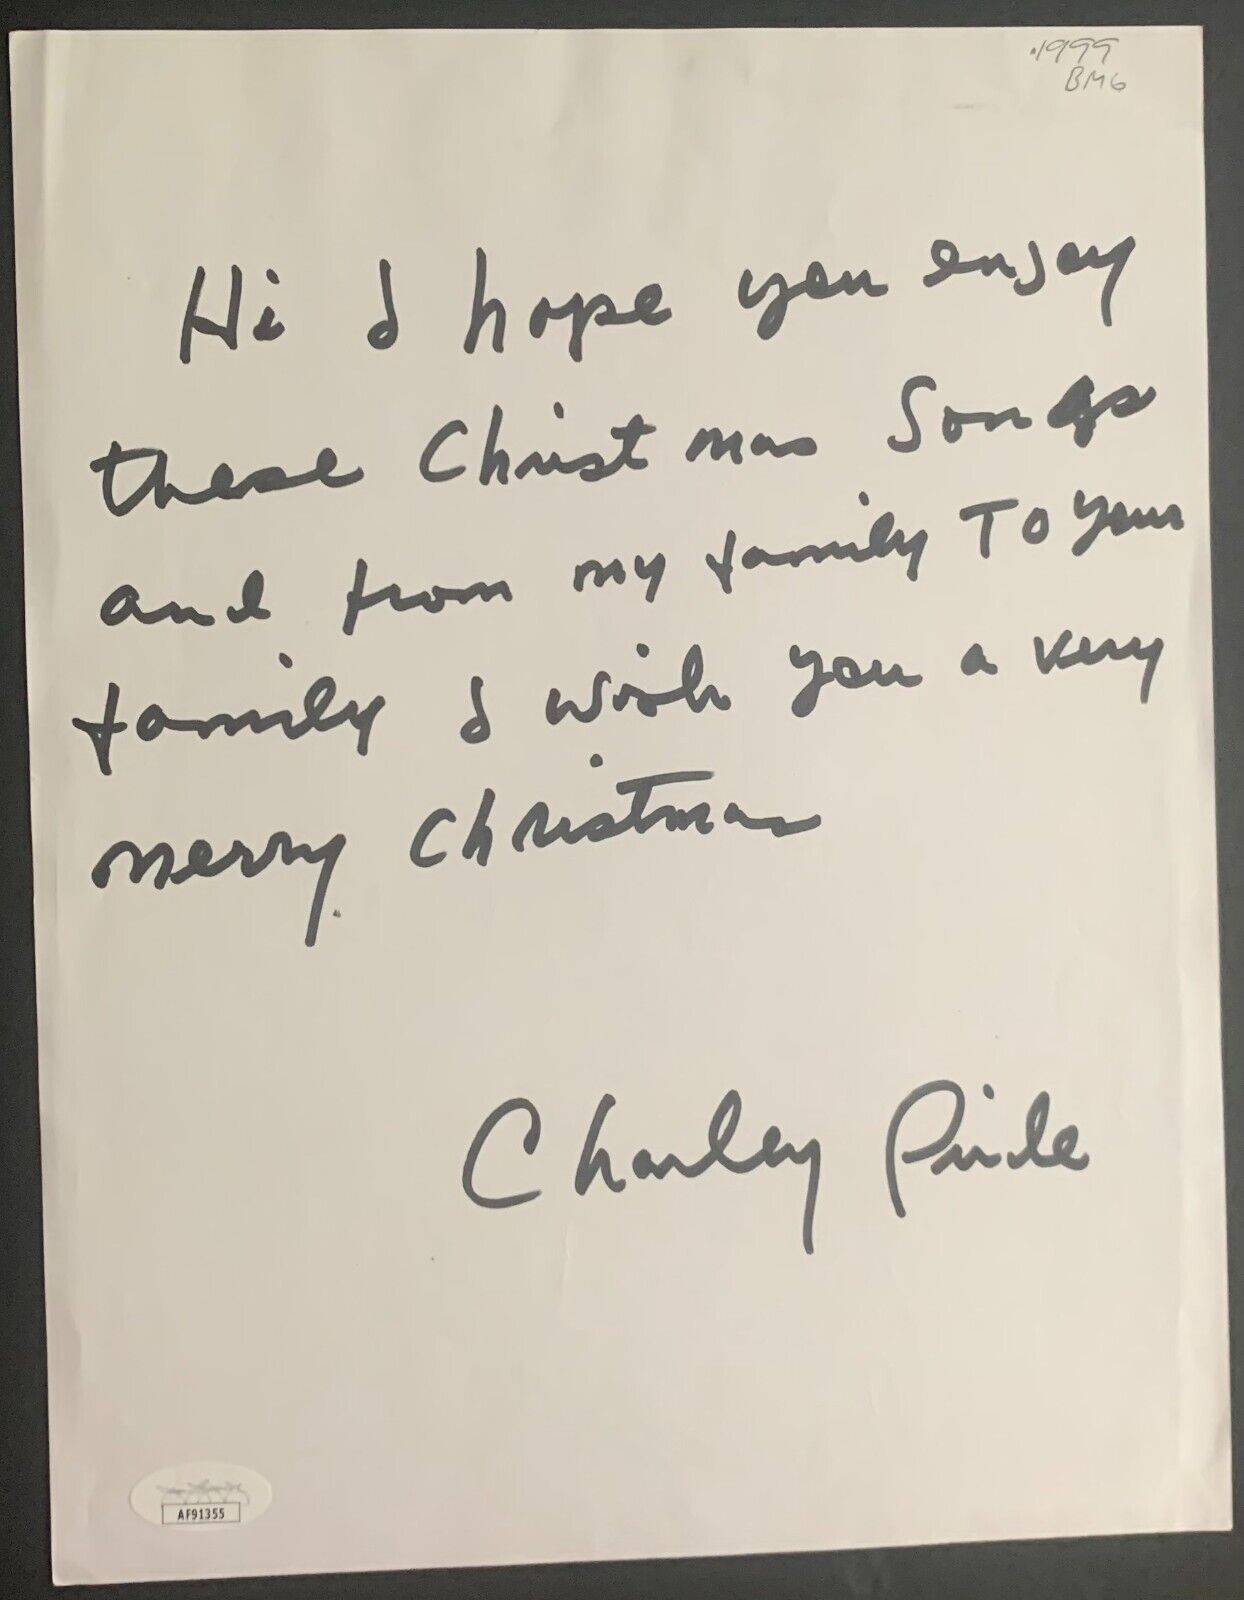 1999
BMG
Hi I hope you enjoy
these Christmas Songs
and from my family To your
family I wish you a very
merry Christmas
Charley Pride
AF91355